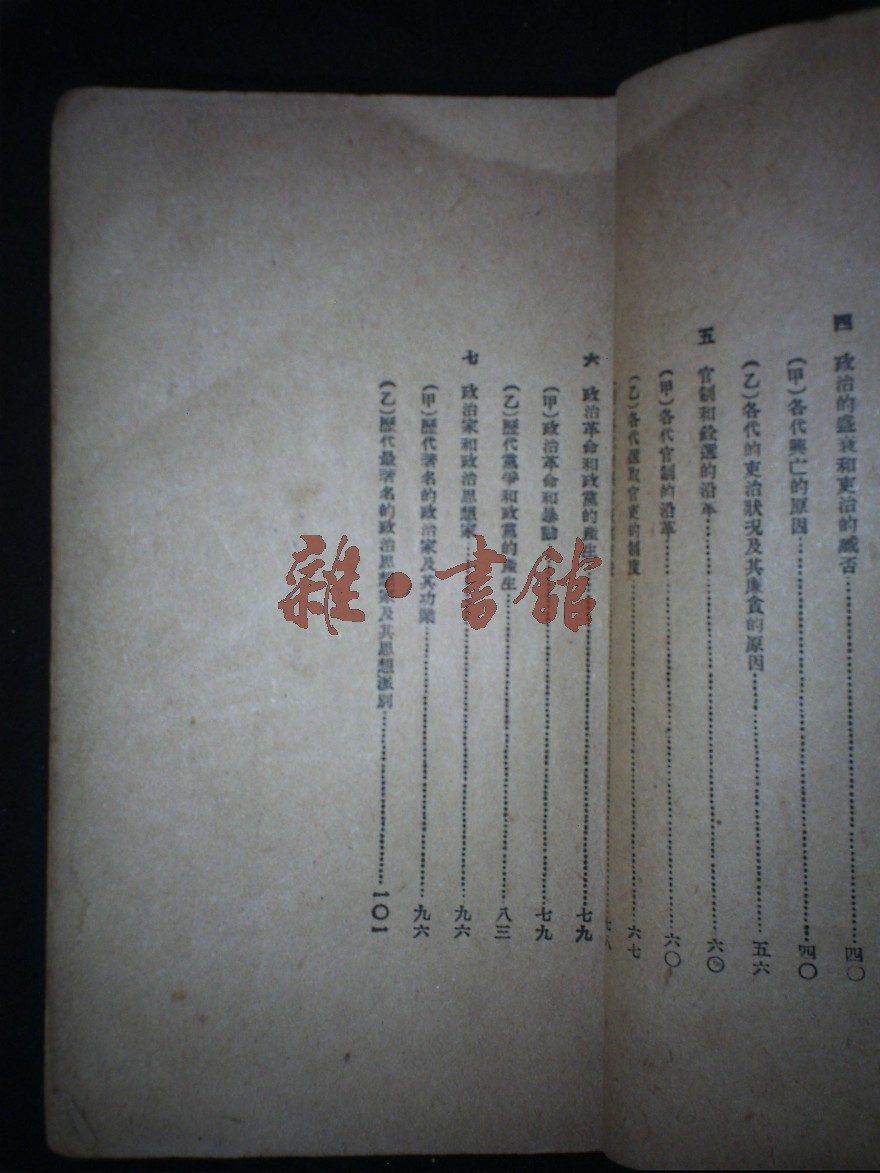 四　政治的盛衰和吏治的臧否…………四〇
（甲）各代興亡的原因…………四〇
（乙）各代的吏治狀况及其廉貪的原因…………五六
五　官制和銓選的沿革…………六〇
（甲）各代官制的沿革…………六〇
（乙）各代選取官吏的制度…………六七
七八
六　政治革命和政黨的產生…………七九
（甲）政治革命和暴動…………七九
（乙）歷代黨爭和政黨的產生…………八三
七　政治家和政治思想家…………九六
（甲）歷代著名的政治家及其功業…………九六
（乙）歷代最著名的政治思想家及其思想派別…………一〇一
雜·書館